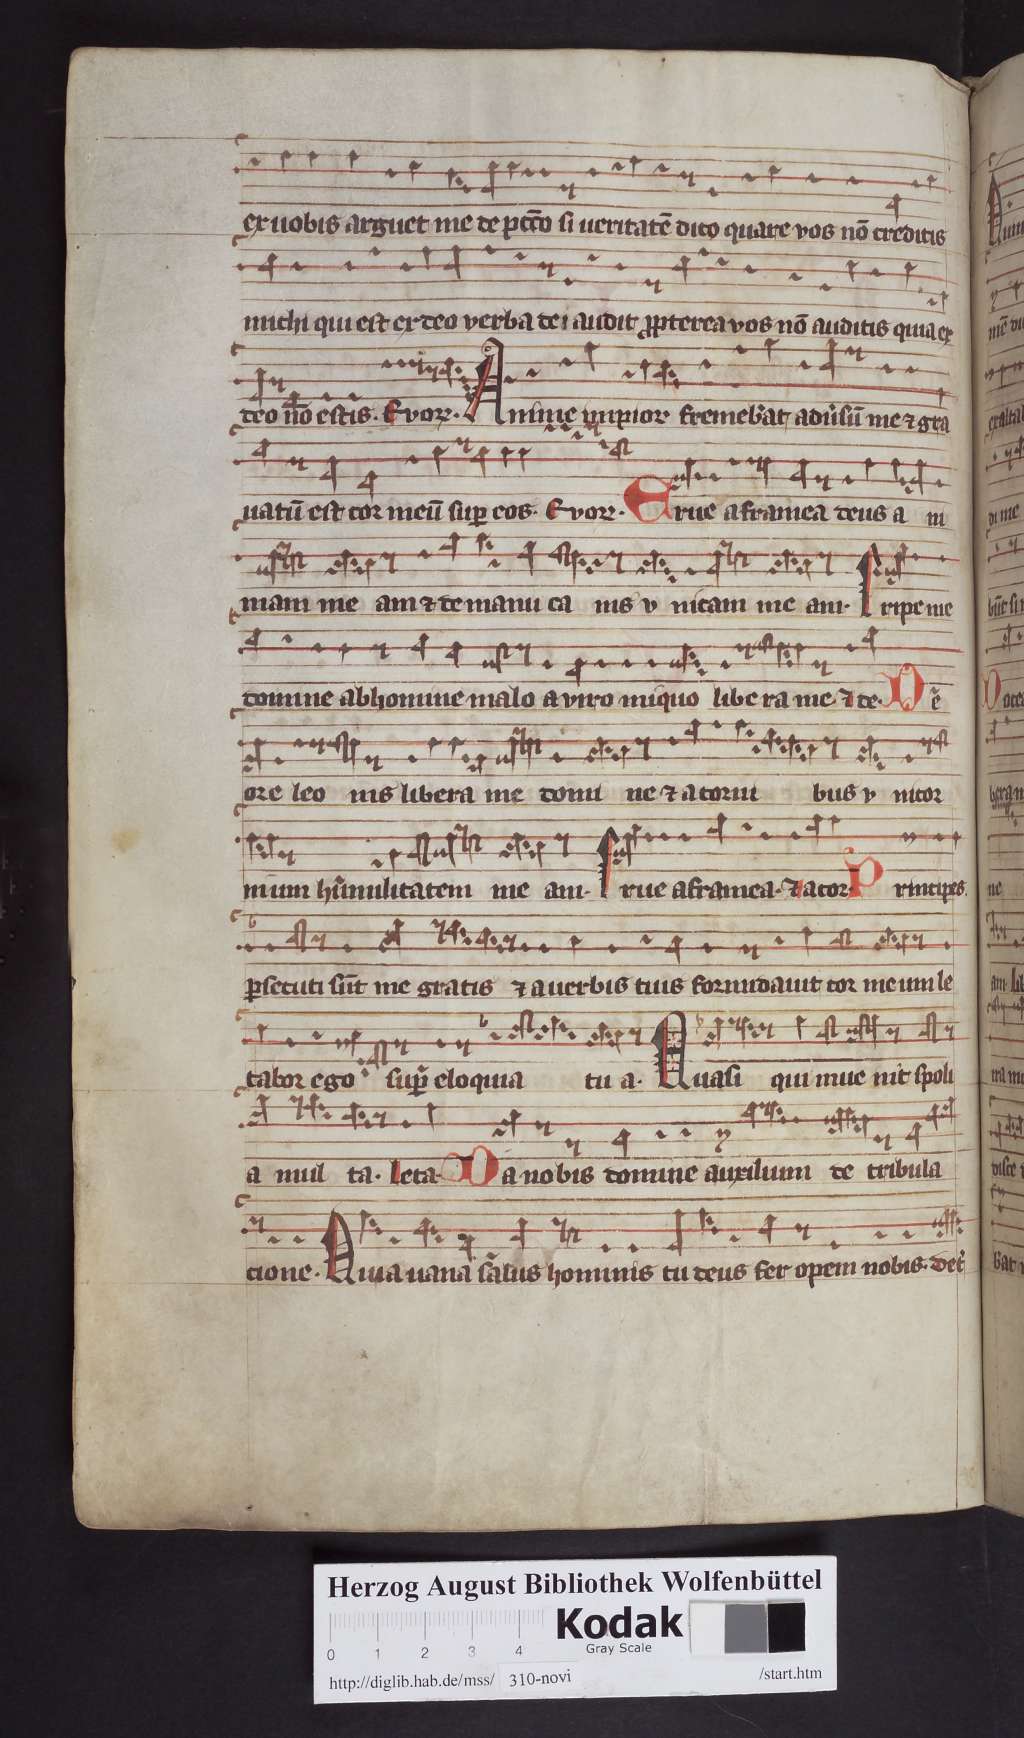 ex uobis arguet me de pctō si ueritatē dico quare vos nō creditis
michi qui est ex deo verba dei audit ꝓpterea vos nō auditis quia ex
deo nō estis. Evor. Anime impior fremebāt adūsū me ⁊ gra
uatū est cor meū suꝑ eos. Evor. Erue a framea deus a ni
mam me am ⁊ de manu ca nis v nicam me am. Eripe me
domine ab homine malo a viro iniquo libe ra me. ⁊ de. De
ore leo nis libera me domi ne ⁊ a cornu bus v nicor
nium hūmilitatem me am. Erue a framea. ⁊ a cor. Principes
ꝑsecuti sūt me gratis ⁊ a uerbis tuis formidauit cor meum le
tabor ego suꝑ eloquia tu a. Quasi qui inue nit spoli
a mul ta. leta. Da nobis domine auxilium de tribula
cione. Quia uana salus hominis tu deus fer opem nobis. det
Herzog August Bibliothek Wolfenbüttel
Kodak
Gray Scale
0 1 2 3 4
http://diglib.hab.de/mss/ 310-novi /start.htm